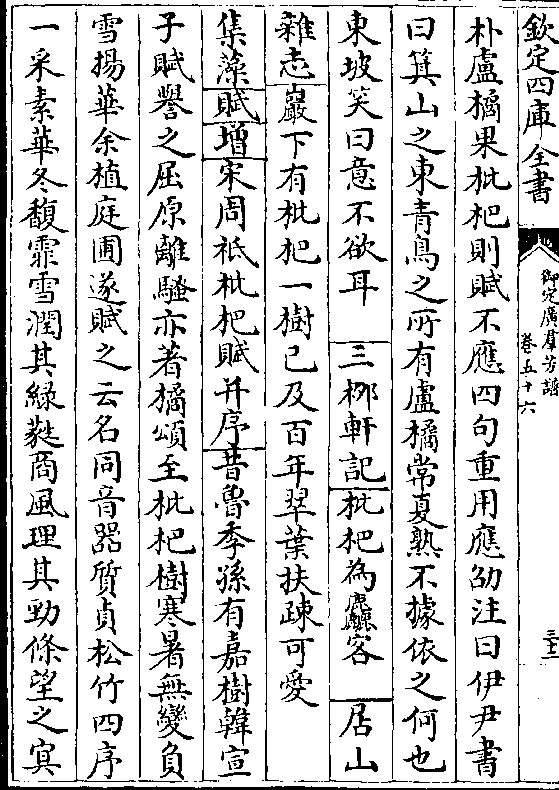 欽定四庫全書
御定廣羣芳譜
卷五十六
三十二
朴盧橘果枇杷則賦不應四句重用應劭注曰伊尹書
曰箕山之東青鳥之所有盧橘常夏熟不據依之何也
東坡笑曰意不欲耳 三栁軒記枇杷為麤客 居山
雜志巖下有枇杷一樹已及百年翠葉扶疎可愛
集藻賦增宋周祗枇杷賦并序昔魯季孫有嘉樹韓宣
子賦譽之屈原離騷亦著橘頌至枇杷樹寒暑無變負
雪揚華余植庭圃遂賦之云名同音器質貞松竹四序
一采素華冬馥霏雪潤其綠蕤商風理其勁條望之㝠